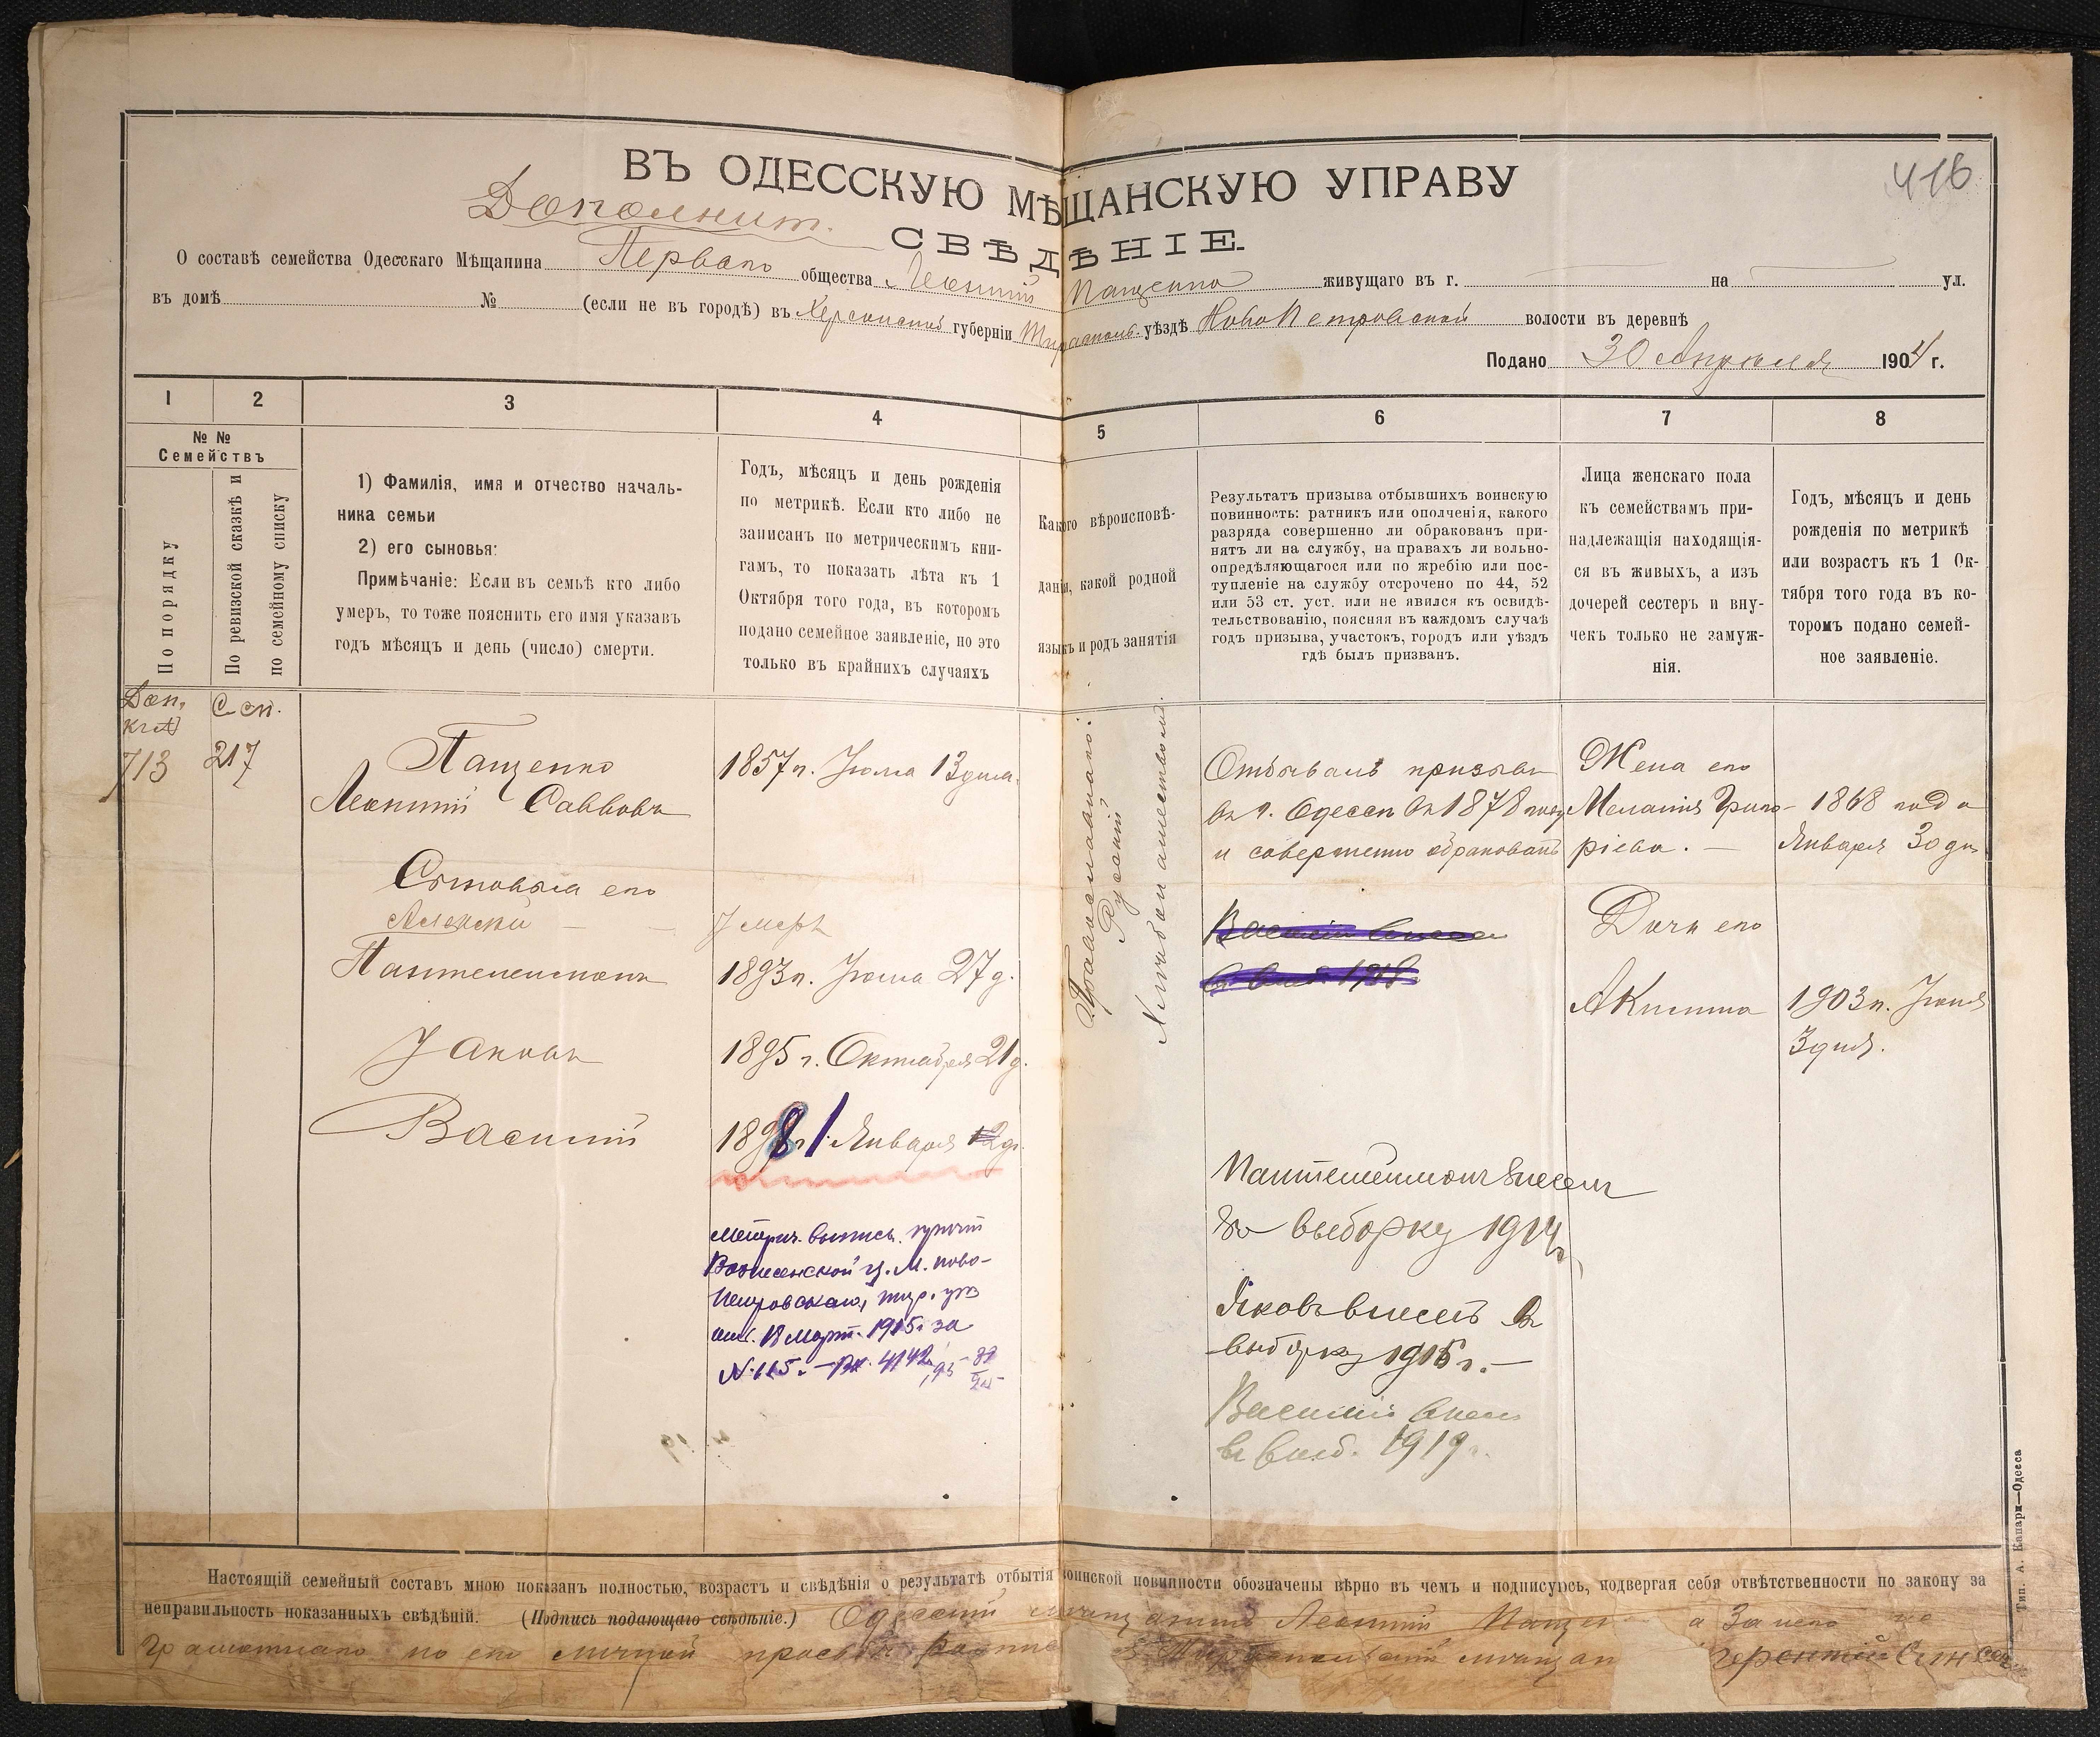 416
ВЪ ОДЕССКУЮ МѢЩАНСКУЮ УПРАВУ
Дополнит.
СВѢДѢНІЕ.
О составѣ семейства Одесскаго Мѣщанина Перваго общества Леонтій Пащенко живущаго въ г. на ул.
въ домѣ № (если не въ городѣ) въ Херсонской губерніи Тираспольс. уѣздѣ НовоПетровской волости въ деревнѣ
Подано 30 Апрѣля 1904 г.
1 2 3 4 5 6 7 8
№ №
Семействъ
По порядку
По ревизской сказкѣ и
по семейному списку
1) Фамилія, имя и отчество началь-
ника семьи
2) его сыновья:
Примѣчаніе: Если въ семьѣ кто либо
умеръ, то тоже пояснить его имя указавъ
годъ мѣсяцъ и день (число) смерти.
Годъ, мѣсяцъ и день рожденія
по метрикѣ. Если кто либо не
записанъ по метрическимъ кни-
гамъ, то показать лѣта къ 1
Октября того года, въ которомъ
подано семейное заявленіе, но это
только въ крайнихъ случаяхъ
Какого вѣроисповѣ-
данія, какой родной
языкъ и родъ занятія
Результатъ призыва отбывшихъ воинскую
повинность: ратникъ или ополченія, какого
разряда совершенно ли обракованъ при-
нятъ ли на службу, на правахъ ли вольно-
опредѣляющагося или по жребію или пос-
тупленіе на службу отсрочено по 44, 52
или 53 ст. уст. или не явился къ освидѣ-
тельствованію, поясняя въ каждомъ случаѣ
годъ призыва, участокъ, городъ или уѣздъ
гдѣ былъ призванъ.
Лица женскаго пола
къ семействамъ при-
надлежащія находящія-
ся въ живыхъ, а изъ
дочерей сестеръ и вну-
чекъ только не замуж-
нія.
Годъ, мѣсяцъ и день
рожденія по метрикѣ
или возрастъ къ 1 Ок-
тября того года въ ко-
торомъ подано семей-
ное заявленіе.
Доп.
713
С сп.
217
Пащенко
Леонтій Саввовъ
Сыновья его
Алексѣй — —
Пантелеимонъ
Яковъ
Василій
1857 г. Іюля 13 дня.
Умеръ
1893 г. Іюля 27 д.
1895 г. Октября 21 д.
1898 г. 1 Января 12 д.
Метрич. выпись. причт
Вознесенской ц. М. ново-
Петровскаго, тир. уѣз
отъ 18 Март. 1915 г. за
N. 115. — Вх. 4142
Православнаго.
Русскій
Хлѣбопашествомъ.
Отбывалъ призывъ
въ г. Одессѣ въ 1878 году
и совершенно обракованъ
Василій внесен
въ выб. 1918.
Пантелеимонъ внесенъ
въ выборку 1914 г.
Яковъ внесенъ въ
выборку 1916 г. —
Василій внесен
въ выб. 1919 г.
Жена его
Меланія Григо-
ріева. —
Дочь его
Акилина
1868 года
Января 30 дн
1903 г. Іюня
3 дня.
Настоящій семейный составъ мною показанъ полностью, возрастъ и свѣдѣнія о результатѣ отбытія воинской повинности обозначены вѣрно въ чемъ и подписуюсь, подвергая себя отвѣтственности по закону за
неправильность показанныхъ свѣдѣній. (Подпись подающаго свѣдѣніе.) Одесскій мѣщанинъ Леонтій Паще а за него не
грамотнаго по его личной просьбѣ роспис Тираспольскій мѣщан
Тип. А. Капари—Одесса